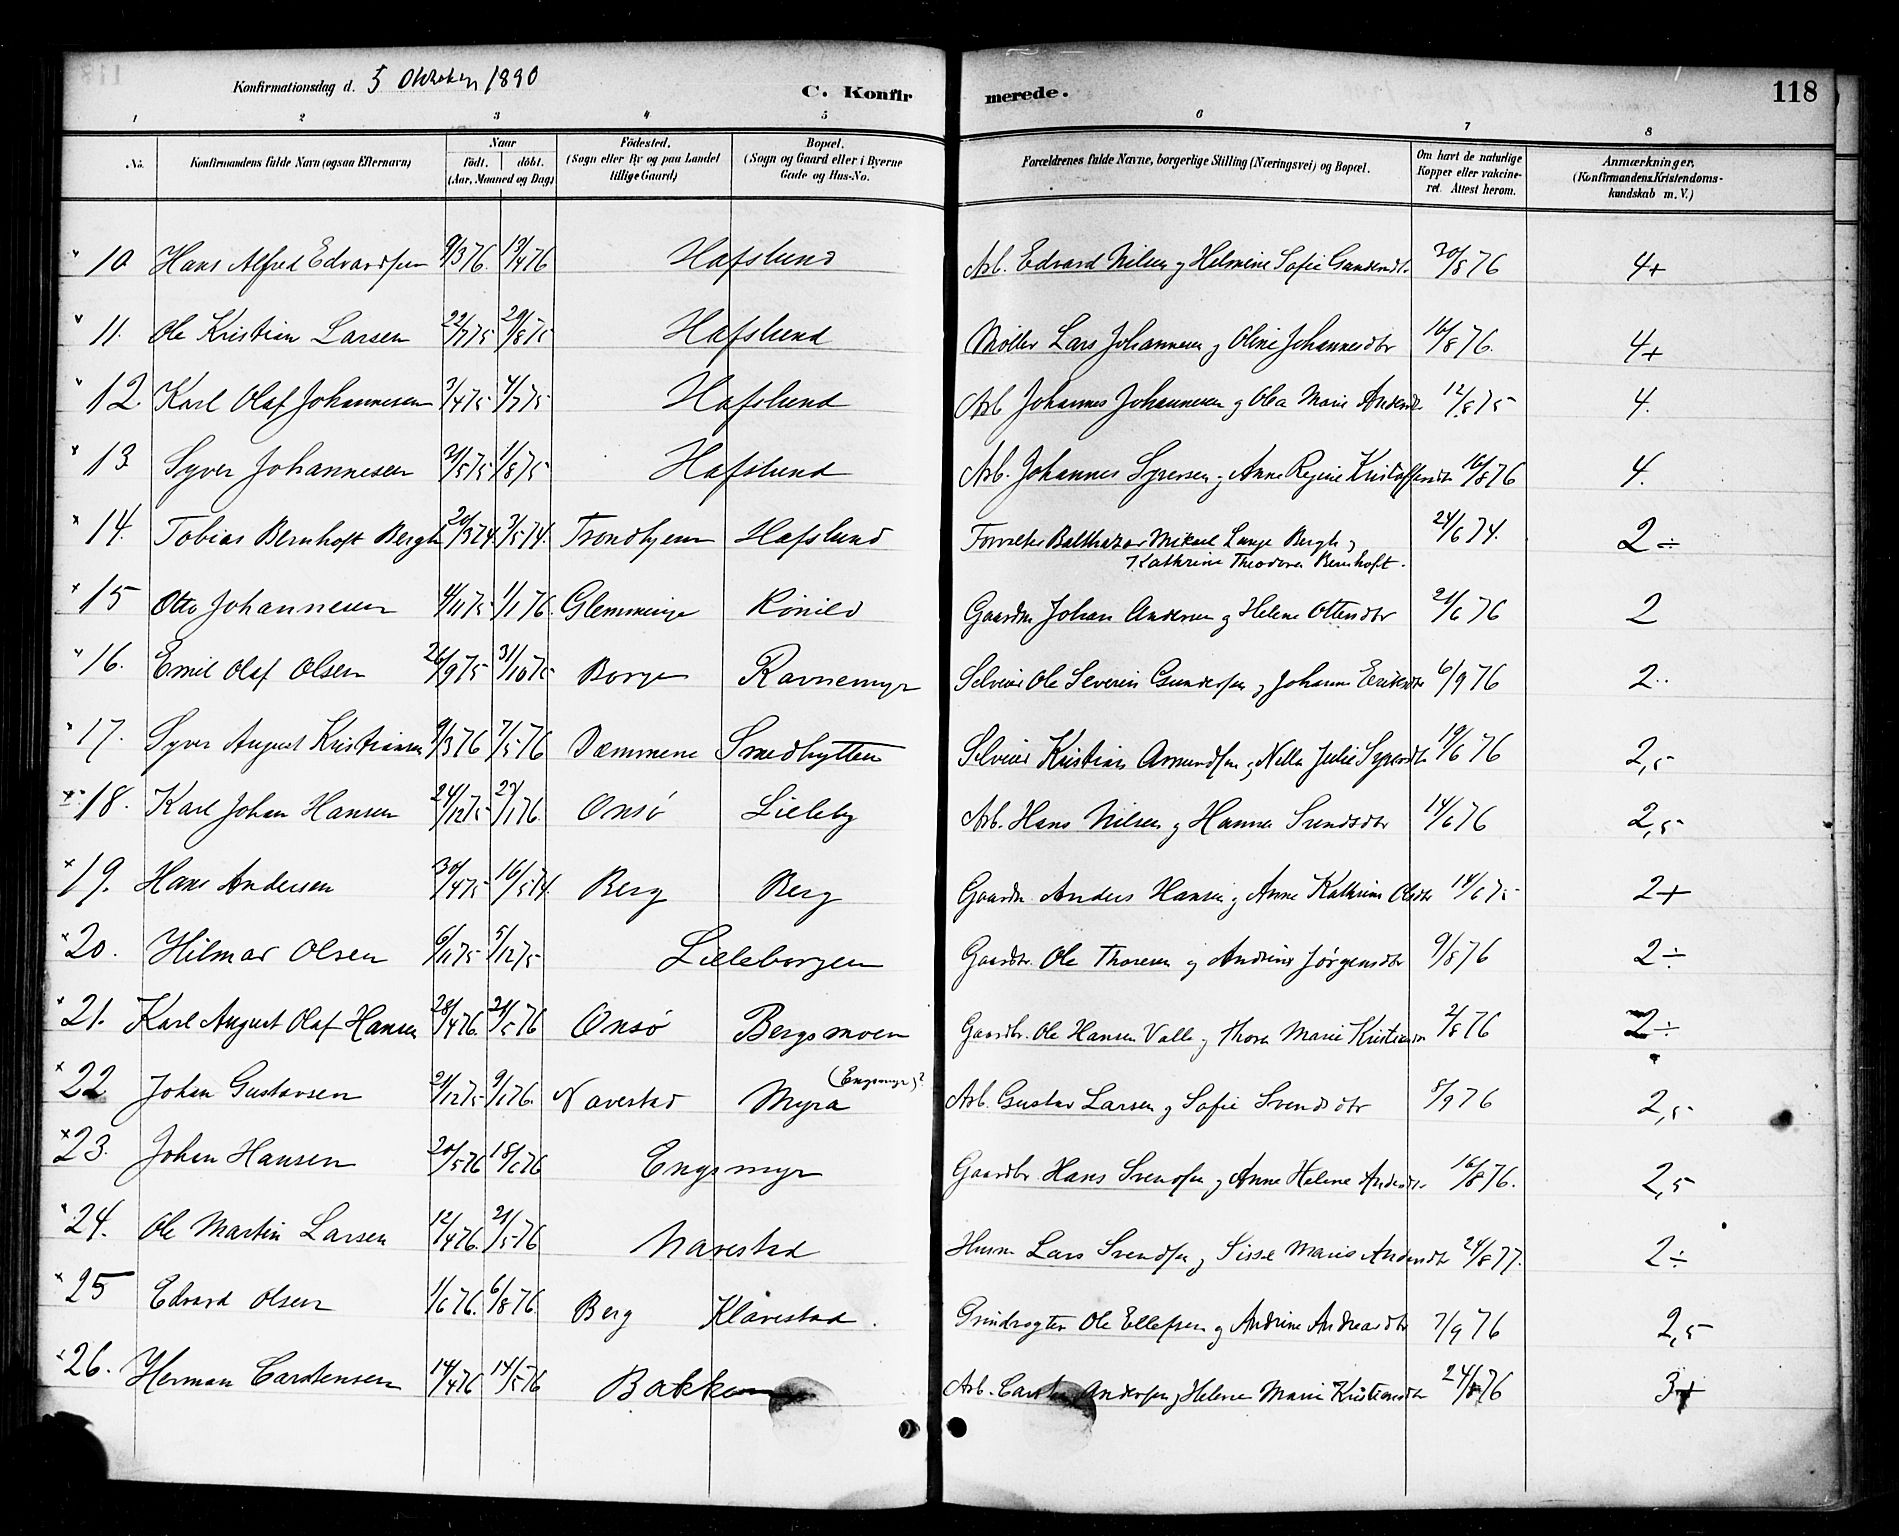 Konfirmationsdag d. 5 Oktober 1890
C. Konfirmerede.
118
1 2 3 4 5 6 7 8
No. Konfirmandens fulde Navn (ogsaa Efternavn) Naar födt. döbt. (Aar, Maaned og Dag) Födested. (Sogn eller By og paa Landet tillige Gaard) Bopæl. (Sogn og Gaard eller i Byerne Gade og Hus-No. Forældrenes fulde Navne, borgerlige Stilling (Næringsvei) og Bopæl. Om havt de naturlige Kopper eller vakcineret. Attest herom. Anmærkninger. (Konfirmandens Kristendomskundskab m. V.)
10 Hans Alfred Edvardsen 9/3 76. 13/4 76 Hafslund Arb. Edvard Nilsen og Helmine Sofie Gundersdtr. 20/8 76 4+
11. Ole Kristian Larsen 22/7 75 29/8 75 Hafslund Møller Lars Johannesen og Oline Johannesdtr 16/8 76. 4+
12. Karl Olaf Johannesen 3/4 75 4/7 75 Hafslund Arb Johannes Johannesen og Olea Marie Andersdtr. 12/8 75 4.
13. Syver Johannesen 31/5 75 1/8 75 Hafslund Arb. Johannes Syversen og Anne Regine Kristoffersdtr 16/8 76 4.
14. Tobias Bernhoft Bergh 20/3 74. 3/5 74. Trondhjem Hafslund Forvalter Balthazar Mikael Lange Bergh og
Kathrine Theodora Bernhoft. 24/6 74. 2÷
15 Otto Johannesen 4/11 75 1/1 76. Glemminge Rönild Gaardm Johan Andersen og Helene Ottersdtr 21/6 76 2
16. Emil Olaf Olsen 26/9 75 31/10 75 Borge Ravnemyr Selveier Ole Severin Gundersen og Johanne Eriksdtr 6/9 76 2..
17. Syver August Kristiansen 9/3 76 7/5 76 Dæmmene Smedhytten Selveier Kristian Amundsen og Nella Julie Syversdtr 19/6 76 2,5
18. Karl Johan Hansen 24/12 75 23/1 76. Onsö Lilleby Arb. Hans Nilsen og Hanna Svendsdtr 14/6 76 2,5
19. Hans Andersen 30/4 75 16/5 74. Berg Berg Gaardm. Anders Hansen og Anne Kathrine Olsdtr 14/6 75 2+
20. Hilmar Olsen 6/11 75 5/12 75 Lilleborgen Gaardbr. Ole Thoresen og Andrine Jørgensdtr 9/8 76 2÷
21. Karl August Olaf Hansen 28/4 76. 21/5 76 Onsö Bergsmoen Gaardbr. Ole Hansen Valle og Thora Marie Kristiansdtr 2/8 76 2÷
22 Johan Gustavsen 21/12 75 9/1 76. Navestad Myra (Engsmyr)? Arb. Gustav Larsen og Sofie Svendsdtr 8/9 76 2,5
23. Johan Hansen 20/5 76 18/6 76 Engsmyr Gaardbr Hans Svendsen og Anne Helene Andersdtr. 16/8 76. 2,5
24. Ole Martin Larsen 12/4 76. 21/5 76 Navestad Husm Lars Svendsen og Sissel Marie Andersdtr 24/8 77. 2÷
25 Edvard Olsen 1/6 76. 6/8 76. Berg Klavestad. Grindvogter Ole Ellefsen og Andrine Andreasdtr 7/9 76 2,5
26. Herman Carstensen 14/4 76 14/5 76 Bakken Arb. Carsten Andersen og Helene Marie Kristiansdtr 24/8 76 3+